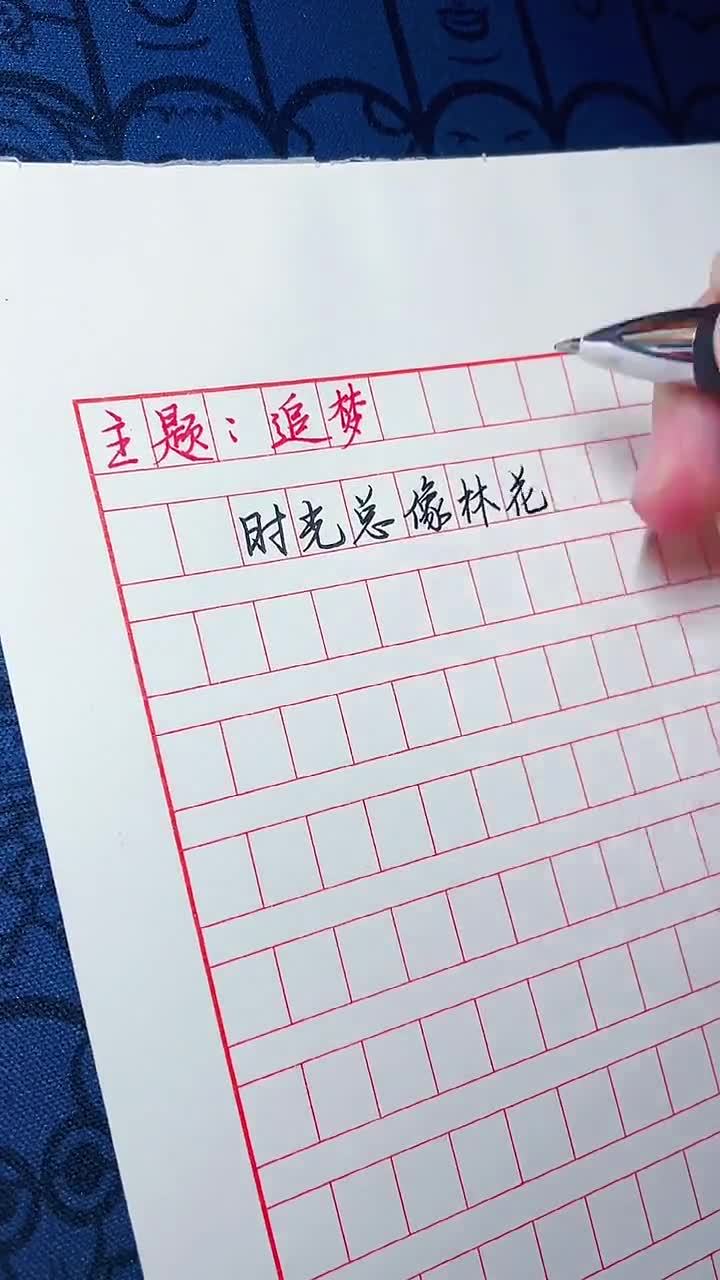 主题：追梦
时光总像林花